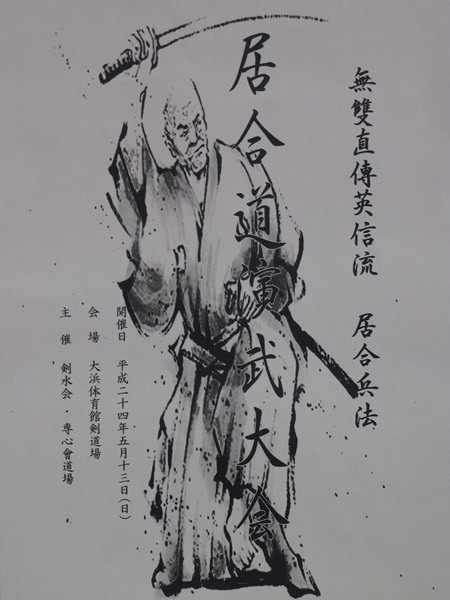 無雙直傳英信流　居合兵法
居合道演武大会
開催日　平成二十四年五月十三日（日）
会　場　大浜体育館剣道場
主　催　剣水会・専心會道場